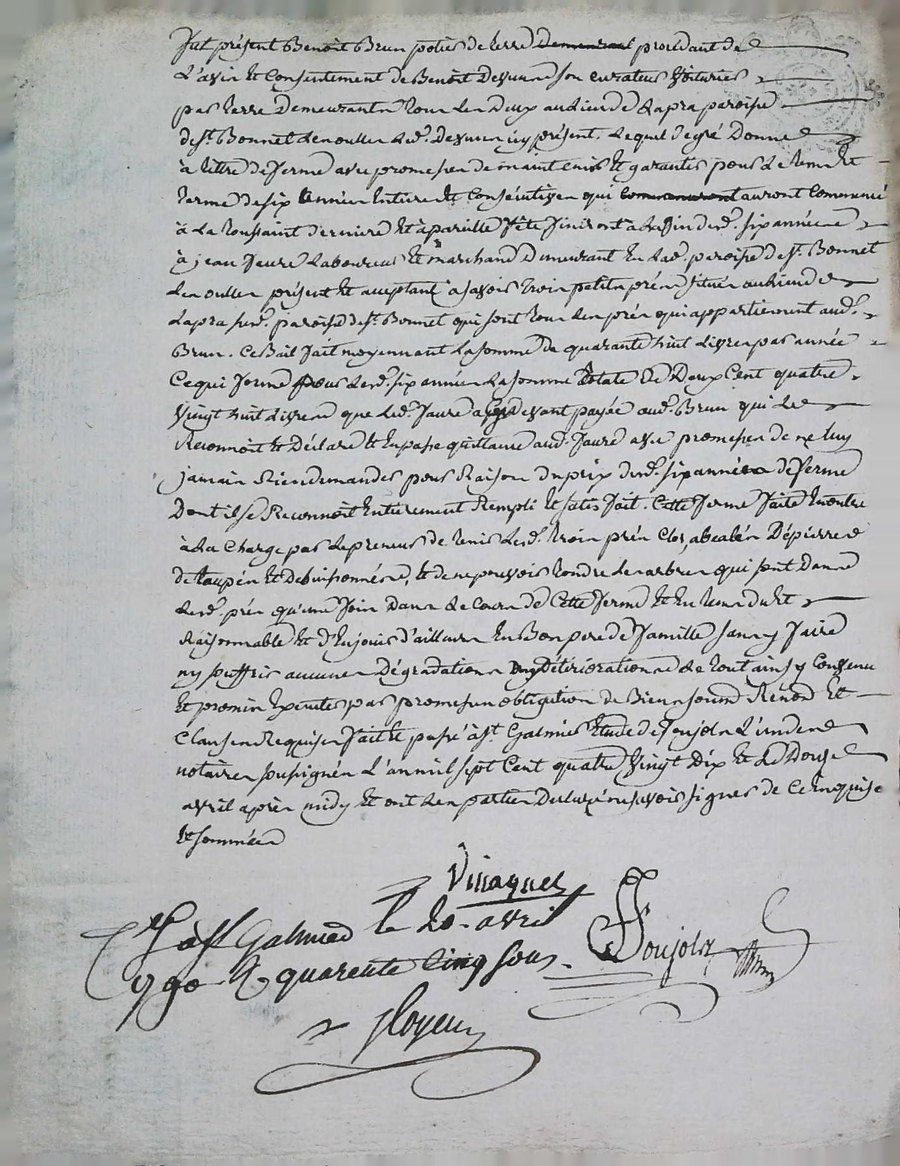 fut présent Benoit Brun potier de terre demeurant procédant de
L'avis et Consentement de Benoit Devun son curateur Voiturier
par terre Demeurants tous les Deux au lieu de Lapra paroisse
de st. Bonnet Les oulles Led. Devun icy présent. Lequel de gré Donne
à titre de ferme avec promesse de maintenir et garantir pour Le tems et
terme de six années Entieres et Consécutives qui commenceront auront Commencé
à La toussaint derniere et à pareille fête finiront a La fin desd. six années
à jean faure Laboureur et marchand demeurant En Lad. paroisse de st. Bonnet
Les oulles présent et acceptant a savoir trois petits prés situés au lieu de
Lapra susd. paroisse de st. Bonnet qui sont tous les prés qui appartiennent aud.
Brun. Ce Bail fait moyennant La somme de quarante huit Livres par année
Ce qui forme pour Lesd. six années La somme totale de Deux Cent quatre
vingt huit Livres que Led. faure a cy devant payée aud. Brun qui Le
Reconnoit et Déclare et En passe quittance aud. faure avec promesse de ne luy
jamais Rien demander pour Raison du prix desd. six années de ferme
Dont il se Reconnoit Entierement Rempli et satisfait. Cette ferme faite En outre
à La Charge par Le preneur de tenir Lesd. trois prés Clos, abealés Dépierrés
détaupés et débuissonnés, et de ne pouvoir tondre Les arbres qui sont Dans
Lesd. prés qu'une fois Dans Le Cours de Cette ferme et En tems du et
Raisonnable et d'En jouir d'ailleurs En Bon pere de famille sans y faire
ny souffrir aucunes Dégradations ny détériorations Le tout ainsy Convenu
et promis Executer par promesses obligation de Biens soumis Renon. et
Clauses Requises fait et passé à st. Galmier Etude de Soujols L'un des
notaires soussignés L'an mil sept Cent quatre vingt Dix et Le Douze
avril après midy et ont Les parties Déclaré ne savoir signer de Ce Enquises
et sommées
Viraguet
Cllé à st Galmier le 20 avril
1790 R quarente cinq sous.
Soujols
ployeus